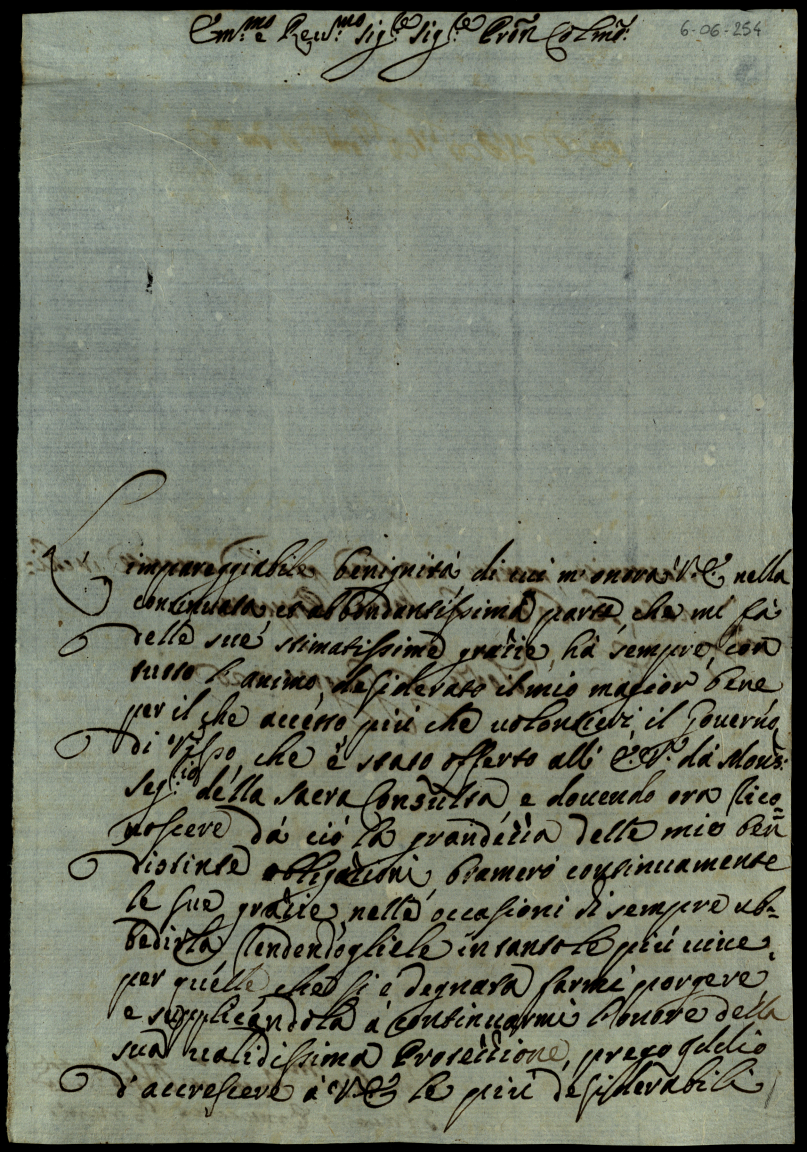 Em.mo e Reu.mo sig.re sig.re Pron Colmo:
6-06-254
L'impareggiabile benignità di cui m'onora V.E. nella
continuata, et abbondantissima parte, che mi fà
delle sue stimatissime gratie, hà sempre, con
tutto l'animo, desiderato il mio maggior bene
per il che accetto più che uolontieri il Gouerno
di Visso, che è stato offerto all' E.V. dà Mons:
Seg.rio della Sacra Consulta e douendo ora rico=
noscere dà ciò la grandezza delle mie ben
distinte obligationi, bramerò continuamente
le sue gratie nelle occasioni di sempre ub=
bedirla, rendendogliele in tanto le più uiue,
per quelle che si è degnata farmi porgere,
e supplicandola à continuarmi l'onore della
sua ualidissima Protettione, prego Iddio
d'accrescere à V.E. le più desiderabili